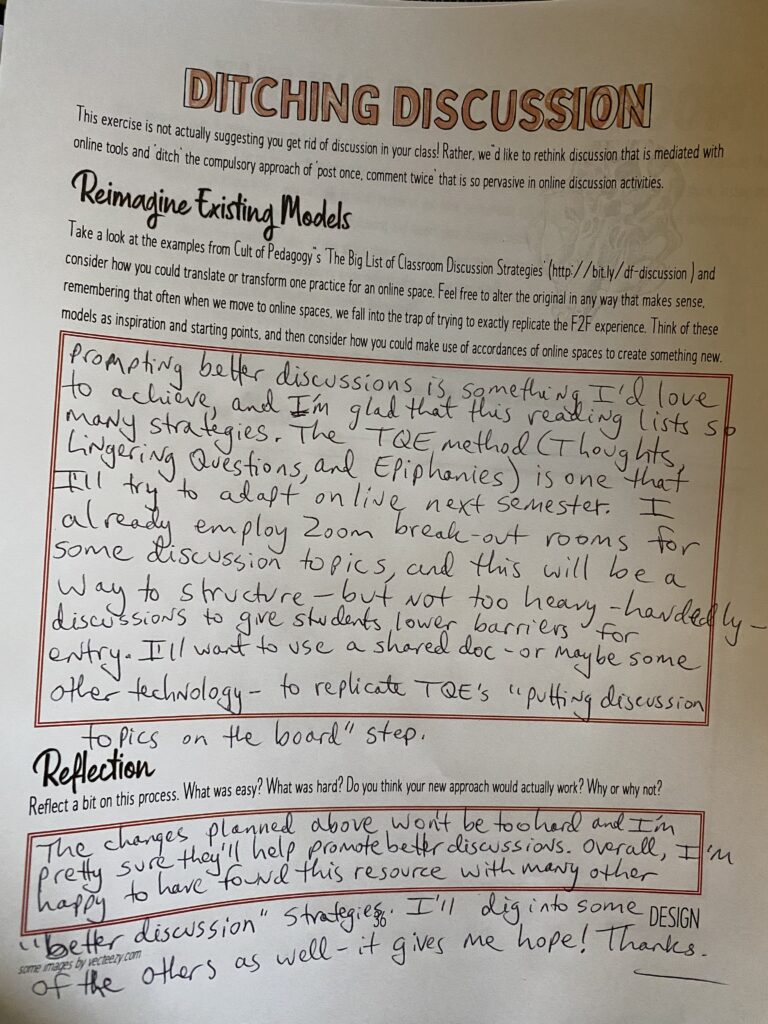 DITCHING DISCUSSION
This exercise is not actually suggesting you get rid of discussion in your class! Rather, we"d like to rethink discussion that is mediated with
online tools and 'ditch' the compulsory approach of 'post once, comment twice' that is so pervasive in online discussion activities.
Reimagine Existing Models
Take a look at the examples from Cult of Pedagogy"s 'The Big List of Classroom Discussion Strategies' (http://bit.ly/df-discussion ) and
consider how you could translate or transform one practice for an online space. Feel free to alter the original in any way that makes sense,
remembering that often when we move to online spaces, we fall into the trap of trying to exactly replicate the F2F experience. Think of these
models as inspiration and starting points, and then consider how you could make use of accordances of online spaces to create something new.
Prompting better discussions is something I'd love
to achieve, and I'm glad that this reading lists so
many strategies. The TQE method (Thoughts,
Lingering Questions, and Epiphanies) is one that
I'll try to adapt online next semester. I
already employ Zoom break-out rooms for
some discussion topics, and this will be a
way to structure - but not too heavy-handedly -
discussions to give students lower barriers for
entry. I'll want to use a shared doc - or maybe some
other technology - to replicate TQE's "putting discussion
topics on the board" step.
Reflection
Reflect a bit on this process. What was easy? What was hard? Do you think your new approach would actually work? Why or why not?
The changes planned above won't be too hard and I'm
pretty sure they'll help promote better discussions. Overall, I'm
happy to have found this resource with many other
"better discussion" strategies. I'll dig into some
of the others as well - it gives me hope! Thanks.
36
DESIGN
some images by vecteezy.com